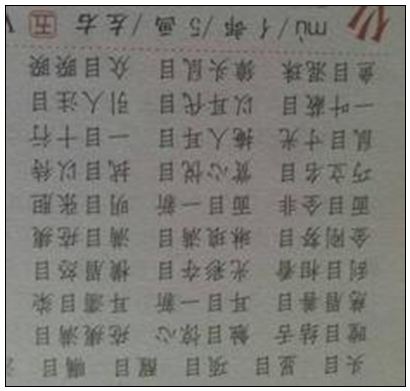 头目 显目 项目 醒目 瞩目
瞠目结舌 触目惊心 疮痍满目
慈眉善目 耳目一新 耳濡目染
刮目相看 光彩夺目 横眉怒目
金刚努目 琳琅满目 满目疮痍
面目全非 面目一新 明目张胆
巧立名目 赏心悦目 拭目以待
鼠目寸光 掩人耳目 一目十行
一叶蔽目 以耳代目 引人注目
鱼目混珠 獐头鼠目 众目睽睽
仫 mù/亻部/5画/左右 五